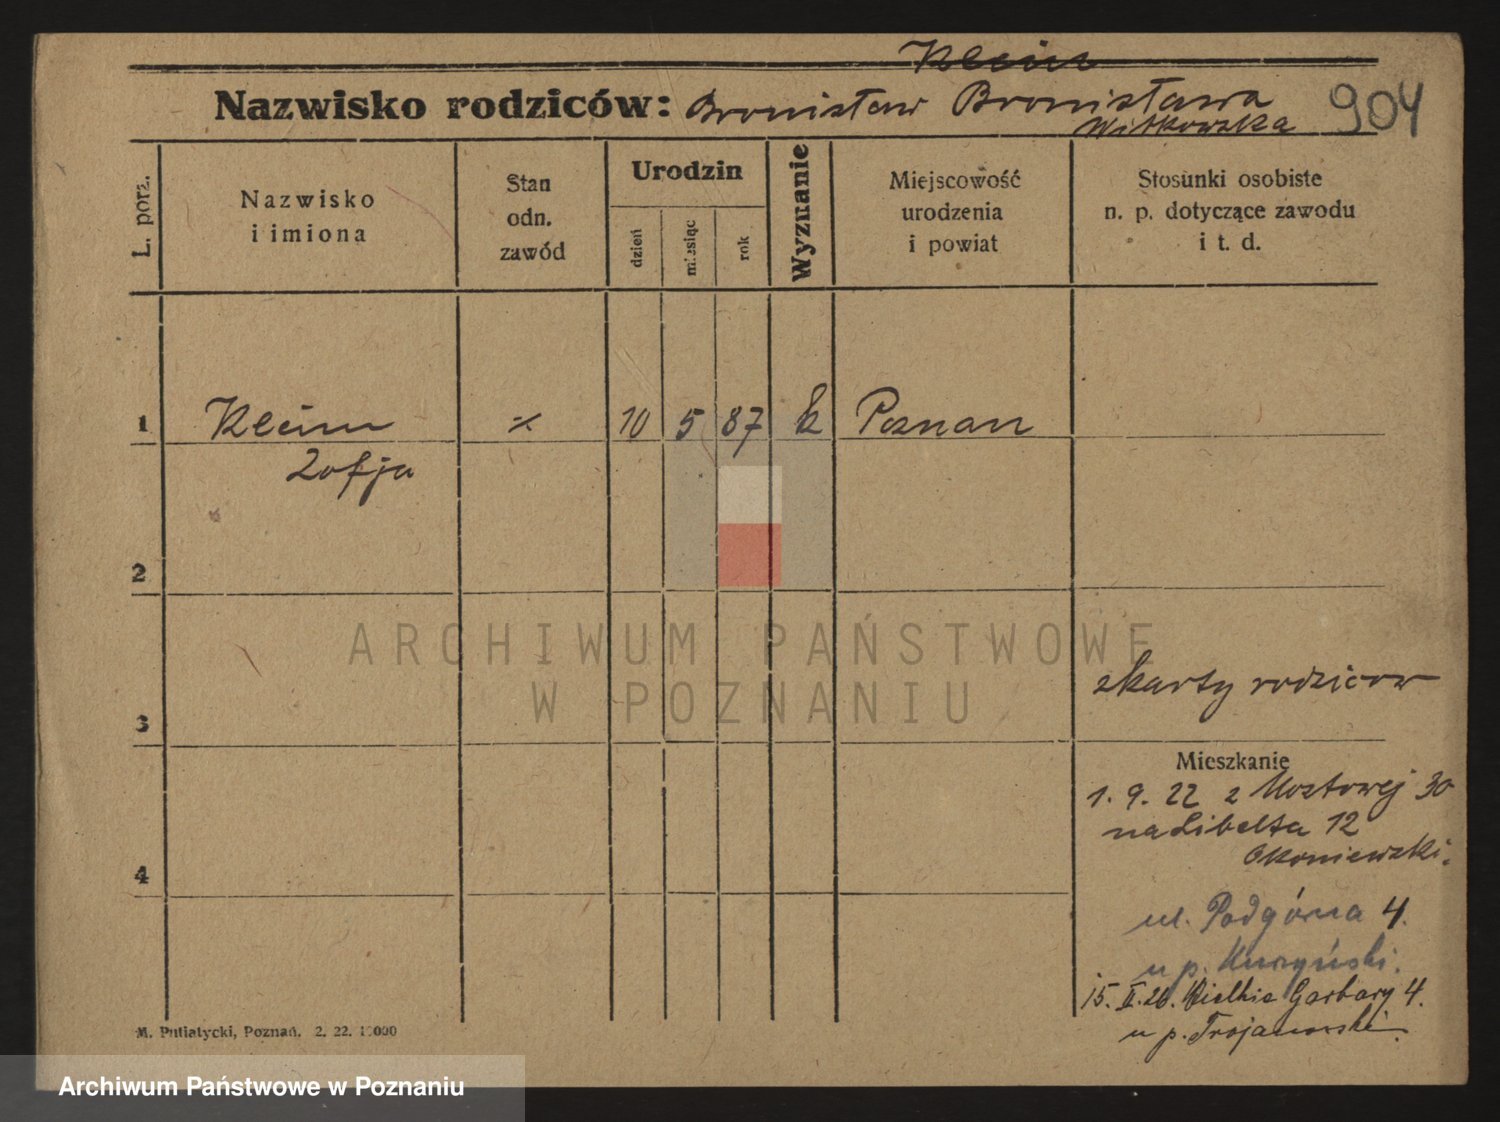 Klein
Nazwisko rodziców: Bronisław Bronisława 904
Witkowska
L. porz.
Nazwisko
i imiona
Stan
odn.
zawód
Urodzin
dzień
miesiąc
rok
Wyznanie
Miejscowość
urodzenia
i powiat
Stosunki osobiste
n. p. dotyczące zawodu
i t. d.
1 Klein 10 5 87 k Poznan
Zofja
2
ARCHIWUM PAŃSTWOWE
W POZNANIU
z karty rodzicow
3
Mieszkanie
1. 9. 22 z Mostowej 30
na Libelta 12
Okoniewski.
4
ul. Podgórna 4.
u p.
15. II. 26. Wielkie Garbary 4.
u p. Trojanowski.
M. Putiatycki, Poznań. 2. 22. 1000
Archiwum Państwowe w Poznaniu